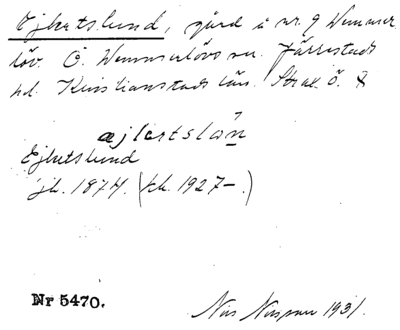 Ejlertslund, gård å nr. 9 Wemmer
löv. Ö. Wemmerlövs sn. Järrestads
hd. Kristianstads län. Strax ö. &
æjlertslön
Ejlertslund
jb. 1877. (kk. 1927–.)
Nr 5470.
Nils Nilsson 1931.